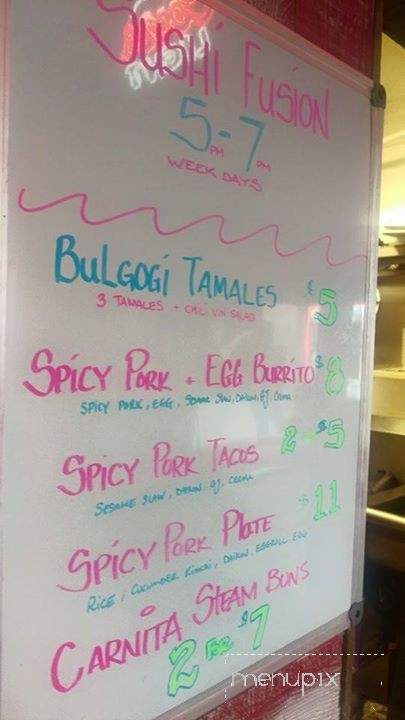 SUSHi FUSiON
5PM-7PM
WEEK DAYS
BULGOGi TAMALES $5
3 TAMALES + CHILI VIN SALAD
SPiCY PORK + EGG BURRITO $8
SPICY PORK, EGG, SESAME SLAW, DAIKON, GJ, CREMA
SPiCY PORK TACOS 2-$5
SESAME SLAW, DAIKON, GJ, CREMA
SPiCY PORK PLATE $11
RICE, CUCUMBER KIMCHI, DAIKON, EGGROLL, EGG
CARNiTA STEAM BUNS
2 FOR $7
menupix